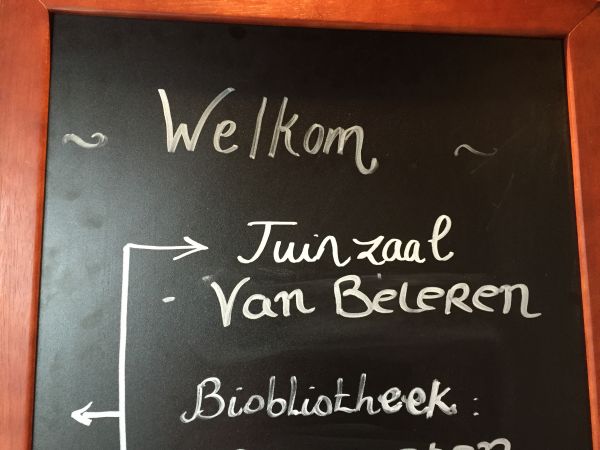 ~ Welkom ~
Tuinzaal
- Van Beleren
Biobliotheek: